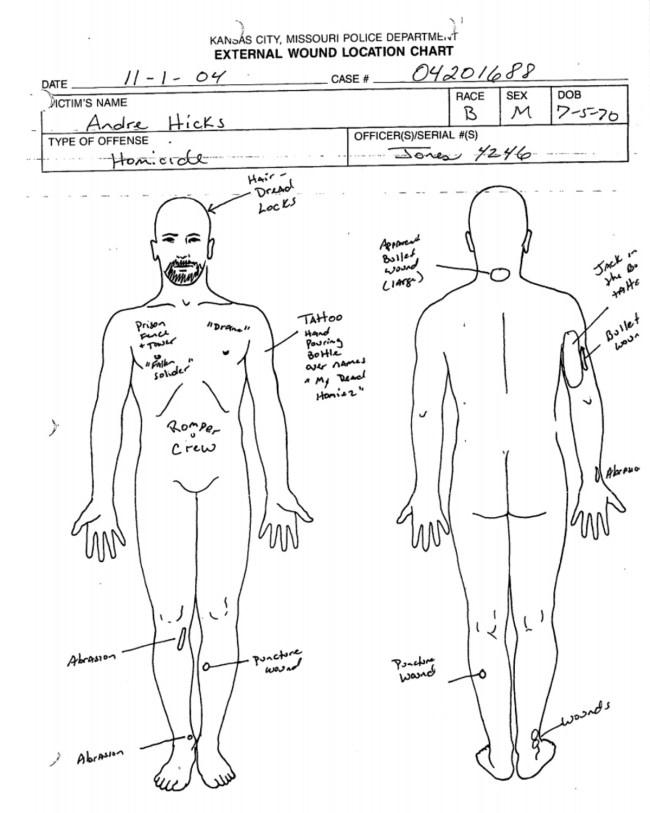 KANSAS CITY, MISSOURI POLICE DEPARTMENT
EXTERNAL WOUND LOCATION CHART
DATE 11-1-04 CASE # 04201688
VICTIM'S NAME
Andre Hicks
RACE
B
SEX
M
DOB
7-5-70
TYPE OF OFFENSE
Homicide
OFFICER(S)/SERIAL #(S)
Jones 4246
Hair -
Dread
Locks
Prison
Fence
+ Tower
"Fallen
Solider"
"Drama"
Tattoo
Hand
Pouring
Bottle
over names
"My Dead
Homiez"
Romper
Crew
Abrasion
Puncture
wound
Abrasion
Apparent
Bullet
wound
(large)
Jack in
the Bo
Bullet
woun
Abrasio
Puncture
Wound
Wounds